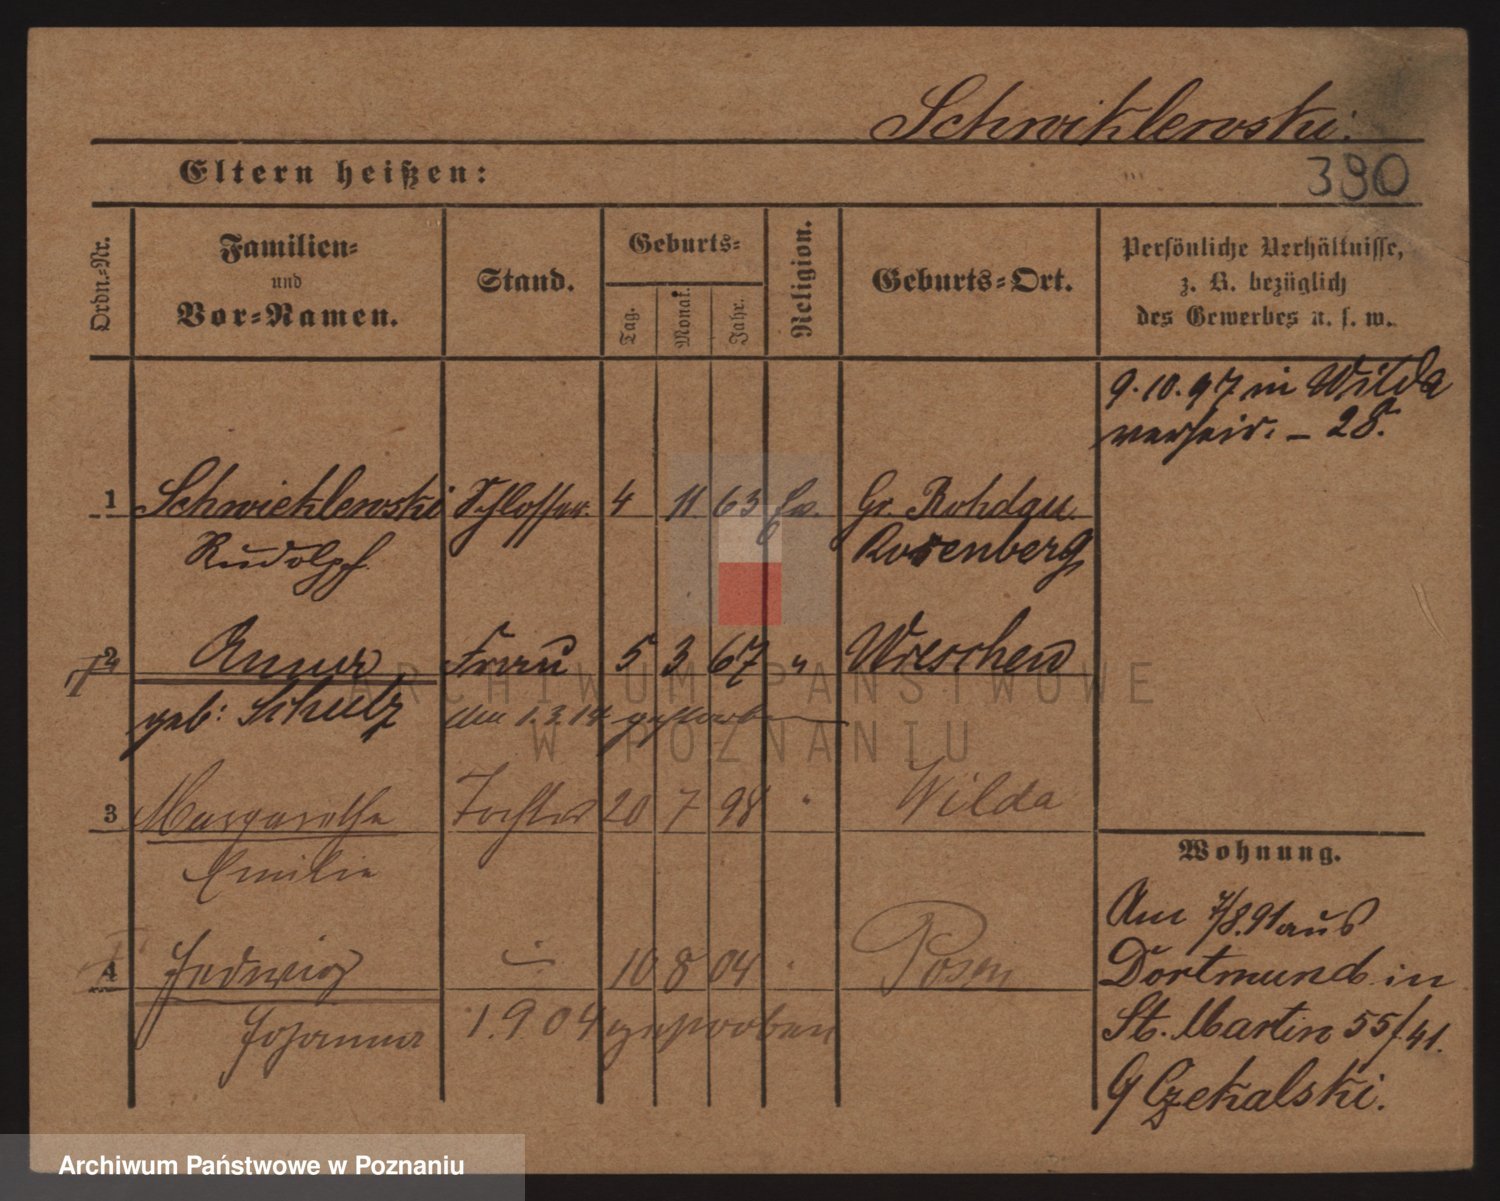 Schwiklewski.
Eltern heißen:
390
Ordn.-Nr.
Familien-
und
Vor-Namen.
Stand.
Geburts-
Tag.
Monat.
Jahr.
Religion.
Geburts-Ort.
Persönliche Verhältnisse,
z. B. bezüglich
des Gewerbes u. s. w.
9.10.97 in Wilda
verheir. – 28.
1 Schwieklewski Schlosser 4 11 63 Ev. Gr. Rohdau
Rudolph Rosenberg
2 Anna Frau 5 3 67 " Wreschen
geb: Schulz den 1.3.14 gestorben
3 Margarethe Tochter 20 7 98 " Wilda
Emilie
4 Hedwig 10 8 04 " Posen
Johanna 1.9.04 gestorben
Wohnung.
Am 7/8.91 aus
Dortmund in
St. Martin 55/41.
Czekalski.
ARCHIWUM PAŃSTWOWE
W POZNANIU
Archiwum Państwowe w Poznaniu